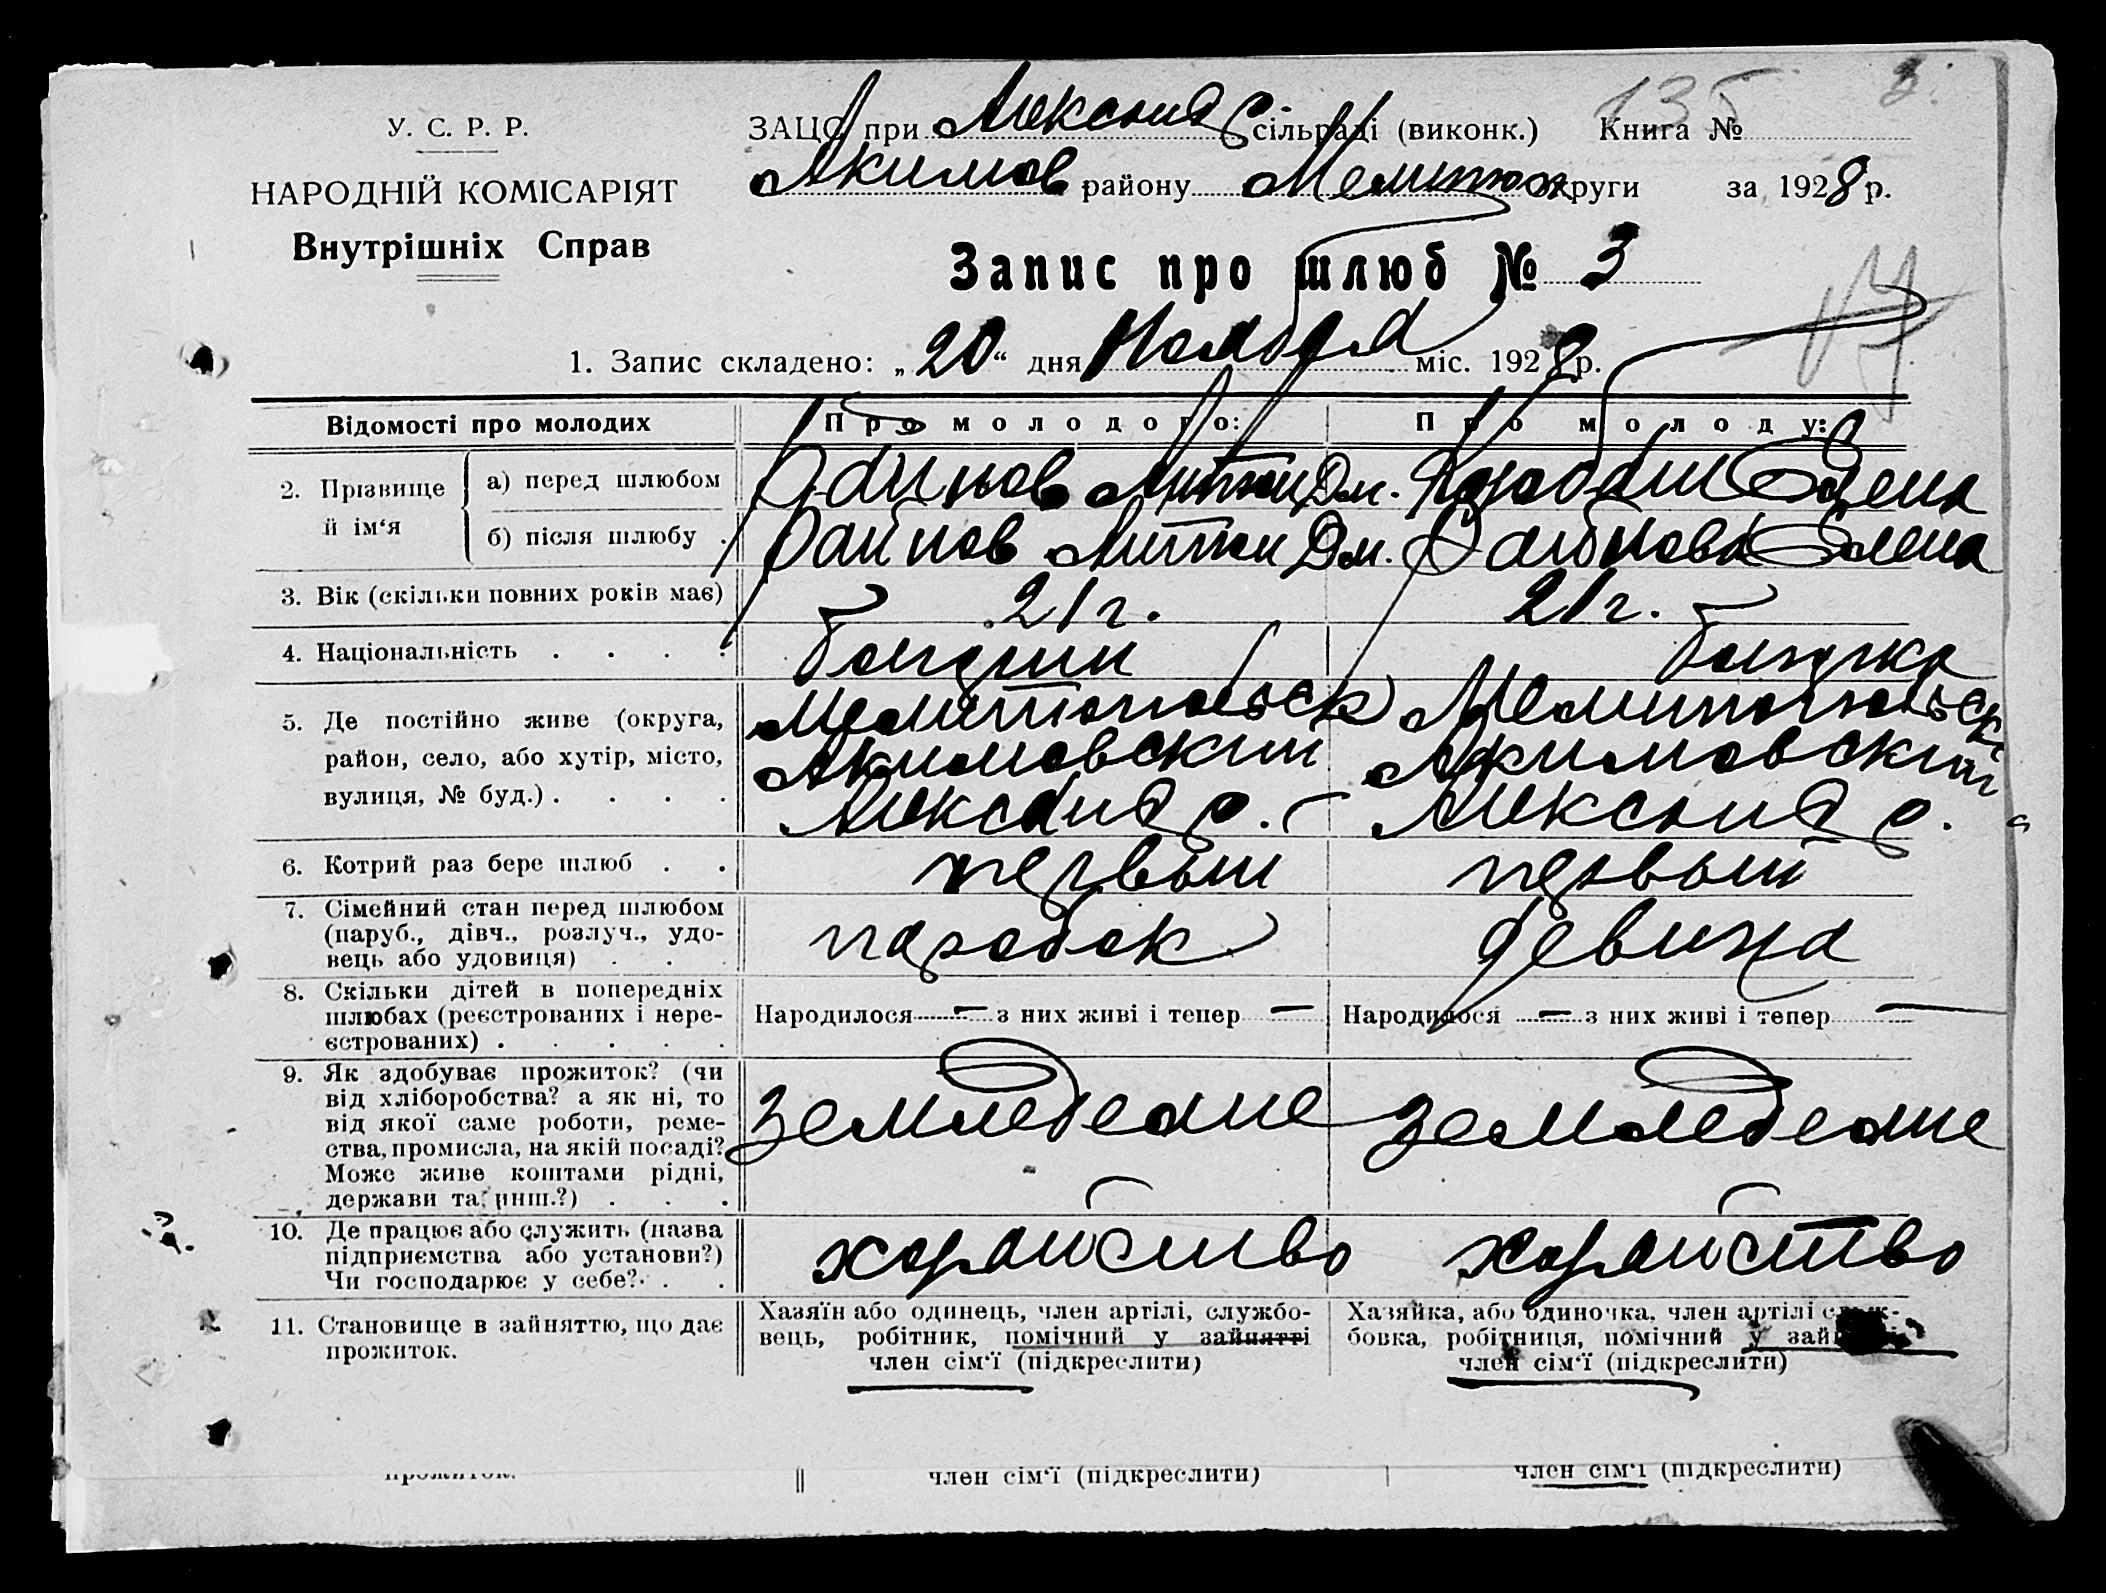 135 3.
У. С. Р. Р.
НАРОДНІЙ КОМІСАРІЯТ
Внутрішніх Справ
ЗАЦС при Александ сільраді (виконк.) Книга №
Акимов району Мелитоп округи за 1928 р.
Запис про шлюб № 3
17
1. Запис складено: „20“ дня Ноября міс. 1928 р.
Відомості про молодих Про молодого: Про молоду:
2. Прізвище й ім‘я
а) перед шлюбом Дм. Елена
б) після шлюбу . Дм. Елена
3. Вік (скільки повних років має) 21 г. 21 г.
4. Національність . . . . болгарин болгарка
5. Де постійно живе (округа, Мелитопольск Мелитопольск
район, село, або хутір, місто, Акимовский Акимовский
вулиця, № буд.) . . . . Александ Александ
6. Котрий раз бере шлюб . . первый первый
7. Сімейний стан перед шлюбом
(паруб., дівч., розлуч., удо-
вець або удовиця) . . . паробок девица
8. Скільки дітей в попередніх
шлюбах (реєстрованих і нере-
єстрованих) . . . . .
Народилося — з них живі і тепер — Народилося — з них живі і тепер —
9. Як здобуває прожиток? (чи
від хліборобства? а як ні, то
від якої саме роботи, реме-
ства, промисла, на якій посаді?
Може живе коштами рідні,
держави та инш.?) . . .
земледелие земледелие
10. Де працює або служить (назва
підприємства або установи?)
Чи господарює у себе? . .
хозяйство хозяйство
11. Становище в зайняттю, що дає
прожиток.
Хазяїн або одинець, член артілі, службо-
вець, робітник, помічний у зайнятті
член сім‘ї (підкреслити)
Хазяйка, або одиночка, член артілі служ-
бовка, робітниця, помічний у
член сім‘ї (підкреслити)
прожиток. член сім‘ї (підкреслити) член сім‘ї (підкреслити)